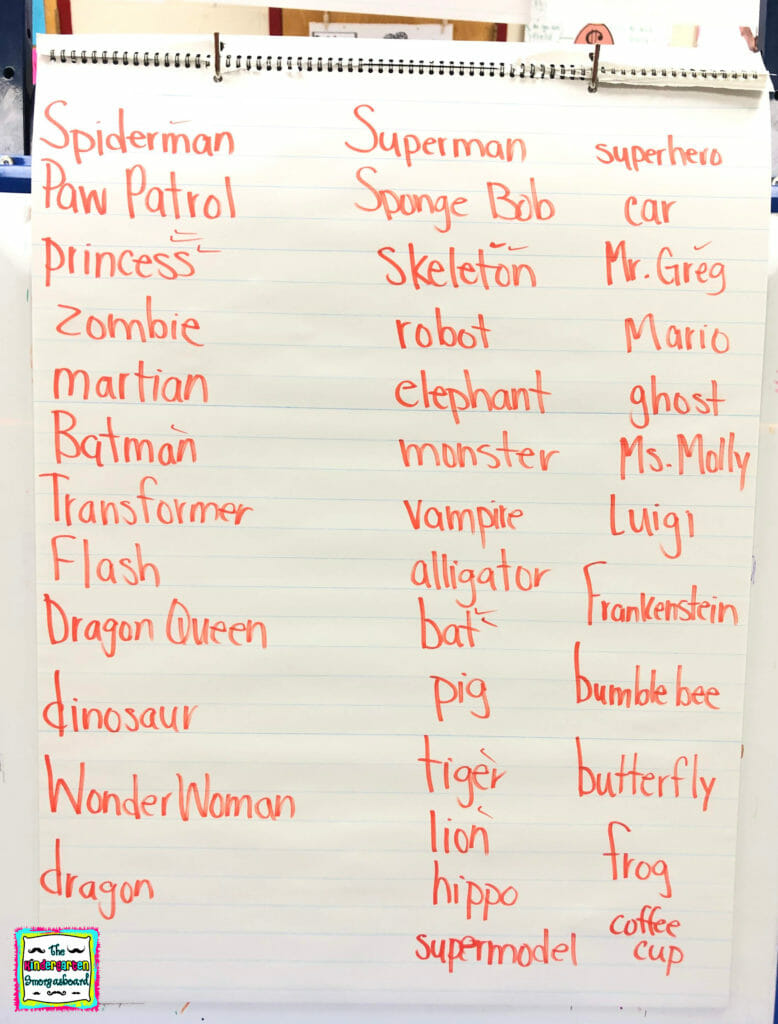 Spiderman
Paw Patrol
princess
zombie
martian
Batman
Transformer
Flash
Dragon Queen
dinosaur
Wonder Woman
dragon
Superman
Sponge Bob
skeleton
robot
elephant
monster
vampire
alligator
bat
pig
tiger
lion
hippo
supermodel
superhero
car
Mr. Greg
Mario
ghost
Ms. Molly
Luigi
Frankenstein
bumble bee
butterfly
frog
coffee
cup
The
Kindergarten
Smorgasboard